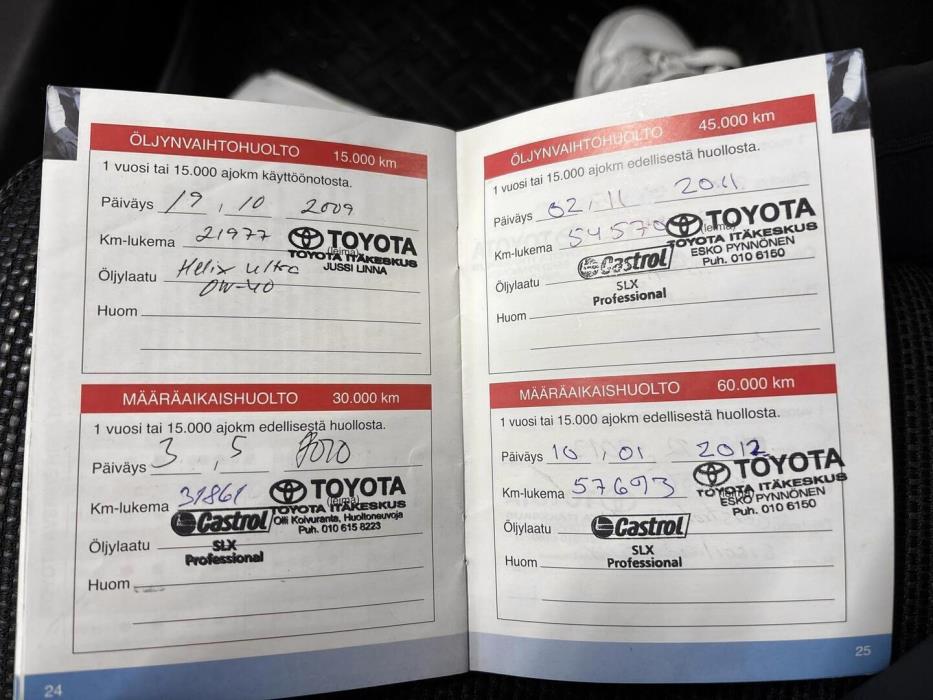 ÖLJYNVAIHTOHUOLTO 15.000 km
1 vuosi tai 15.000 ajokm käyttöönotosta.
Päiväys 19 , 10 2009
Km-lukema 21977
(leima)
TOYOTA
TOYOTA ITÄKESKUS
JUSSI LINNA
Öljylaatu Helix Ultra
0W-40
Huom
MÄÄRÄAIKAISHUOLTO 30.000 km
1 vuosi tai 15.000 ajokm edellisestä huollosta.
Päiväys 3 , 5 2010
Km-lukema 31861
(leima)
TOYOTA
TOYOTA ITÄKESKUS
Olli Koivuranta, Huoltoneuvoja
Puh. 010 615 8223
Castrol
Öljylaatu SLX
Professional
Huom
24
ÖLJYNVAIHTOHUOLTO 45.000 km
1 vuosi tai 15.000 ajokm edellisestä huollosta.
Päiväys 02 , 11 2011
Km-lukema 54570
(leima)
TOYOTA
TOYOTA ITÄKESKUS
ESKO PYNNÖNEN
Puh. 010 6150
Castrol
Öljylaatu SLX
Professional
Huom
MÄÄRÄAIKAISHUOLTO 60.000 km
1 vuosi tai 15.000 ajokm edellisestä huollosta.
Päiväys 10 , 01 2012
Km-lukema 57693
(leima)
TOYOTA
TOYOTA ITÄKESKUS
ESKO PYNNÖNEN
Puh. 010 6150
Öljylaatu Castrol
SLX
Professional
Huom
25